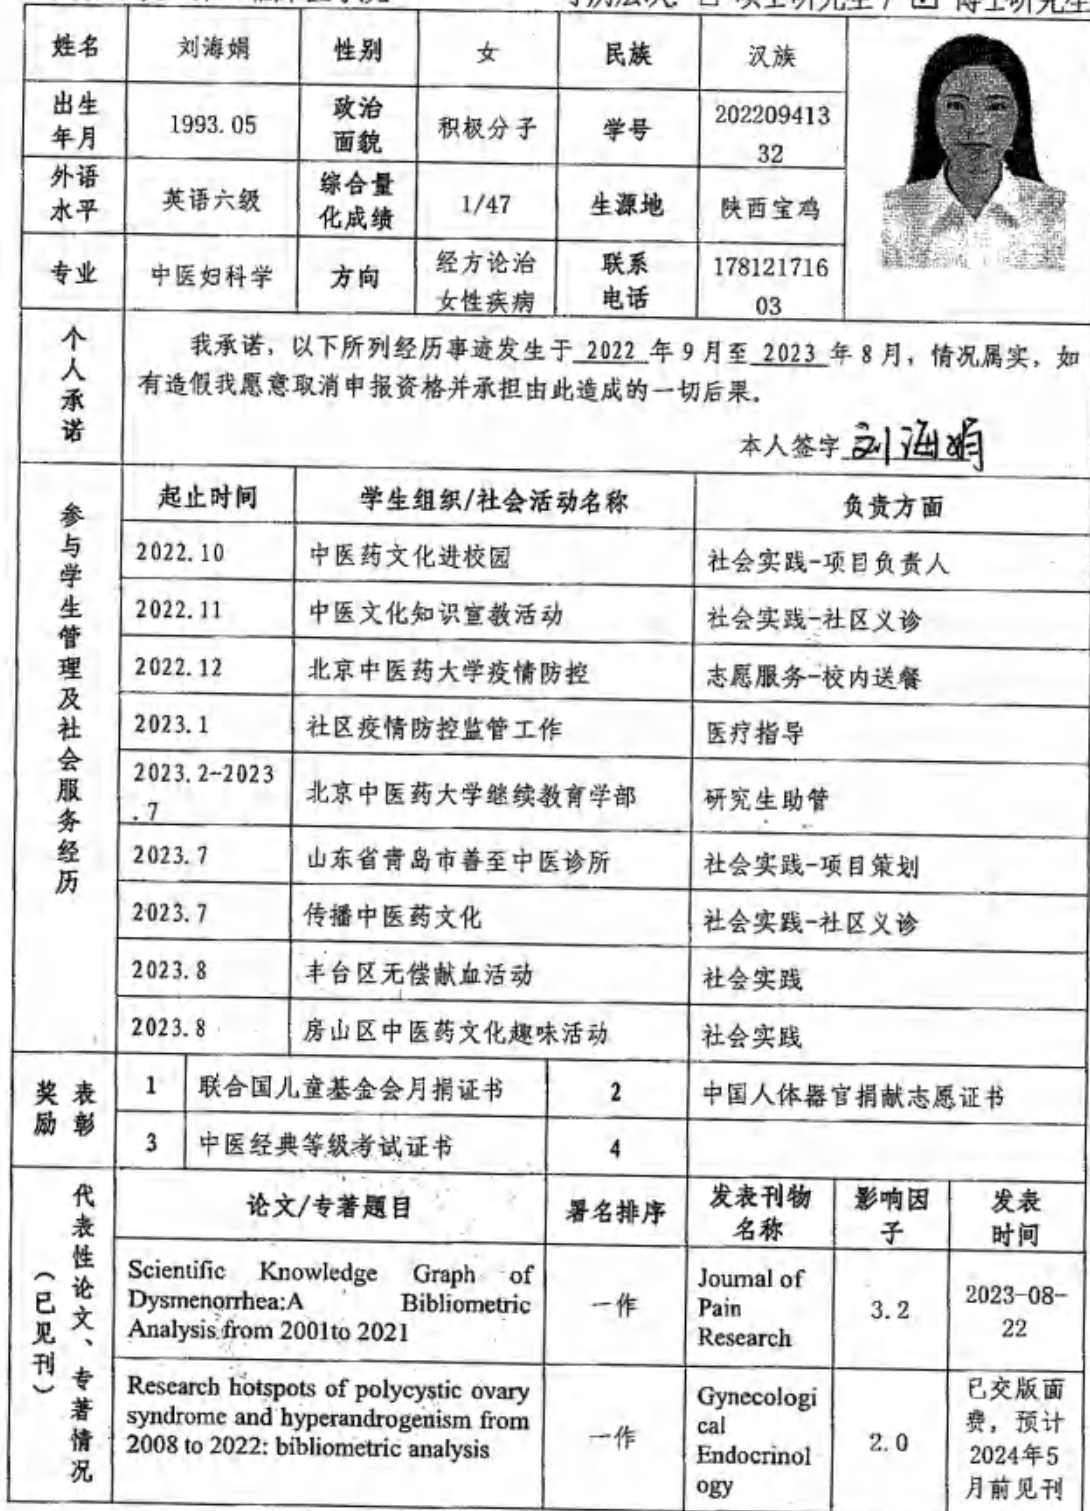 考历层次: 硕士研究生 / ☑ 博士研究生
姓名 刘海娟 性别 女 民族 汉族
出生年月 1993.05 政治面貌 积极分子 学号 20220941332
外语水平 英语六级 综合量化成绩 1/47 生源地 陕西宝鸡
专业 中医妇科学 方向 经方论治女性疾病 联系电话 17812171603
个人承诺
我承诺，以下所列经历事迹发生于 2022 年 9 月至 2023 年 8 月，情况属实，如
有造假我愿意取消申报资格并承担由此造成的一切后果。
本人签字 刘海娟
参与学生管理及社会服务经历
起止时间 学生组织/社会活动名称 负责方面
2022.10 中医药文化进校园 社会实践-项目负责人
2022.11 中医文化知识宣教活动 社会实践-社区义诊
2022.12 北京中医药大学疫情防控 志愿服务-校内送餐
2023.1 社区疫情防控监管工作 医疗指导
2023.2-2023.7 北京中医药大学继续教育学部 研究生助管
2023.7 山东省青岛市善至中医诊所 社会实践-项目策划
2023.7 传播中医药文化 社会实践-社区义诊
2023.8 丰台区无偿献血活动 社会实践
2023.8 房山区中医药文化趣味活动 社会实践
表彰奖励
1 联合国儿童基金会月捐证书 2 中国人体器官捐献志愿证书
3 中医经典等级考试证书 4
代表性论文、专著情况（已见刊）
论文/专著题目 署名排序 发表刊物名称 影响因子 发表时间
Scientific Knowledge Graph of
Dysmenorrhea:A Bibliometric
Analysis from 2001to 2021
一作
Journal of
Pain
Research
3.2
2023-08-
22
Research hotspots of polycystic ovary
syndrome and hyperandrogenism from
2008 to 2022: bibliometric analysis
一作
Gynecologi
cal
Endocrinol
ogy
2.0
已交版面
费，预计
2024年5
月前见刊